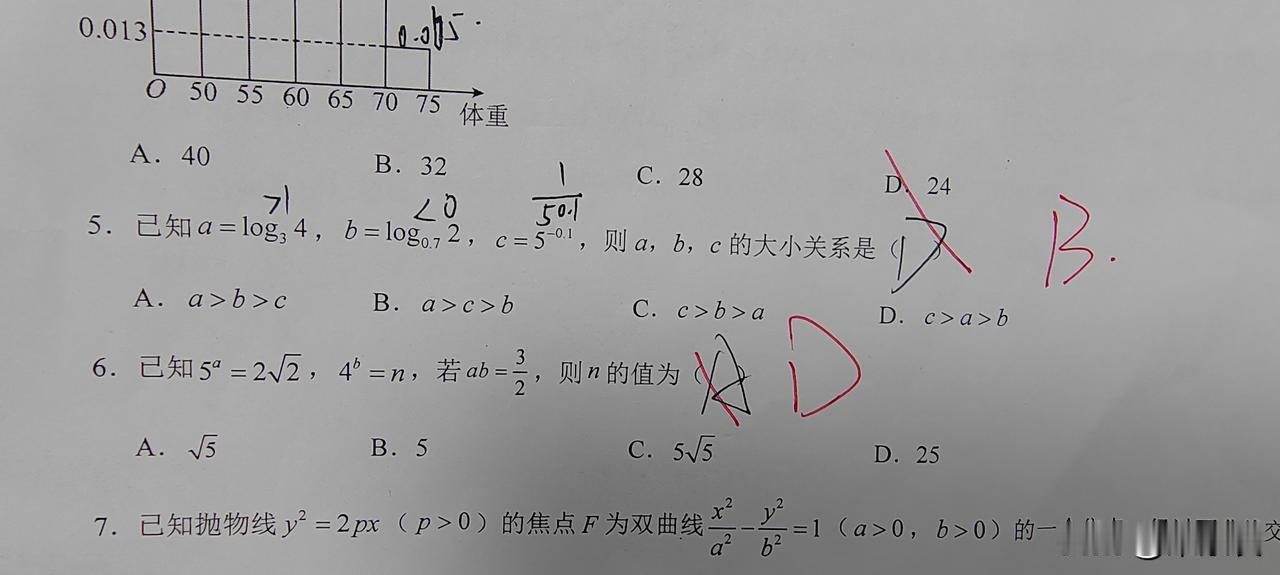 0.013
0.015
O 50 55 60 65 70 75 体重
A. 40 B. 32 C. 28 D. 24
>1 <0 1/5^0.1
5. 已知 a = log₃ 4, b = log₀.₇ 2, c = 5^{-0.1}, 则 a, b, c 的大小关系是 (D) B.
A. a > b > c B. a > c > b C. c > b > a D. c > a > b
6. 已知 5^a = 2√2, 4^b = n, 若 ab = 3/2, 则 n 的值为 (A) D
A. √5 B. 5 C. 5√5 D. 25
7. 已知抛物线 y² = 2px (p > 0) 的焦点 F 为双曲线 x²/a² − y²/b² = 1 (a > 0, b > 0) 的一 交